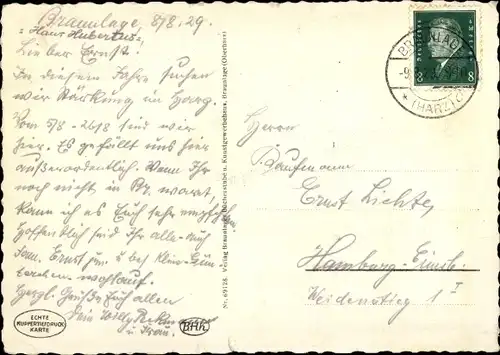 Braunlage, 8/8.29.
"Haus Hubertus"
Lieber Ernst!
In diesem Jahre suchen
wir Stärkung im Harz.
Vom 5/8 - 26/8 sind wir
hier. Es gefällt uns hier
außerordentlich. Wenn Ihr
noch nicht in Br. wart,
kann ich es Euch sehr empfehlen
Hoffentlich seid Ihr alle, auch
Fam. Ernst jun. u bes. klein
wohlauf.
Herzl. Grüße Euch allen
Dein Willy
u Frau.
ECHTE
KUPFERTIEFDRUCK
KARTE
Nr. 69128 Verlag Braunlager
BHK
DEUTSCHES REICH
8 8
BRAUNLAGE
(HARZ)
Herrn
Kaufmann
Ernst Lichte,
Hamburg-Eimsb.
Weidenstieg 1 I